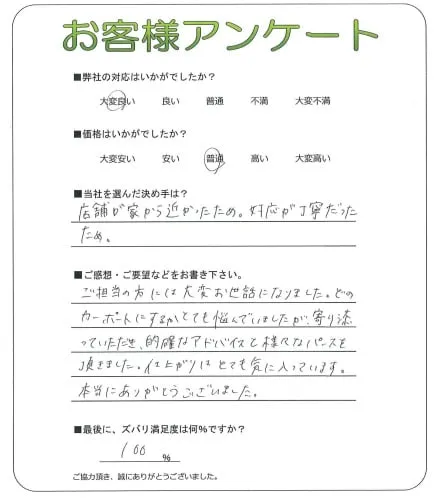 お客様アンケート
■弊社の対応はいかがでしたか?
大変良い 良い 普通 不満 大変不満
■価格はいかがでしたか?
大変安い 安い 普通 高い 大変高い
■当社を選んだ決め手は?
店舗が家から近かったため。対応が丁寧だった
ため。
■ご感想・ご要望などをお書き下さい。
ご担当の方には大変お世話になりました。どの
カーポートにするかとても悩んでいましたが、寄り添
っていただき、的確なアドバイスと様々なパースを
頂きました。仕上がりはとても気に入っています。
本当にありがとうございました。
■最後に、ズバリ満足度は何%ですか?
100 %
ご協力頂き、誠にありがとうございました。